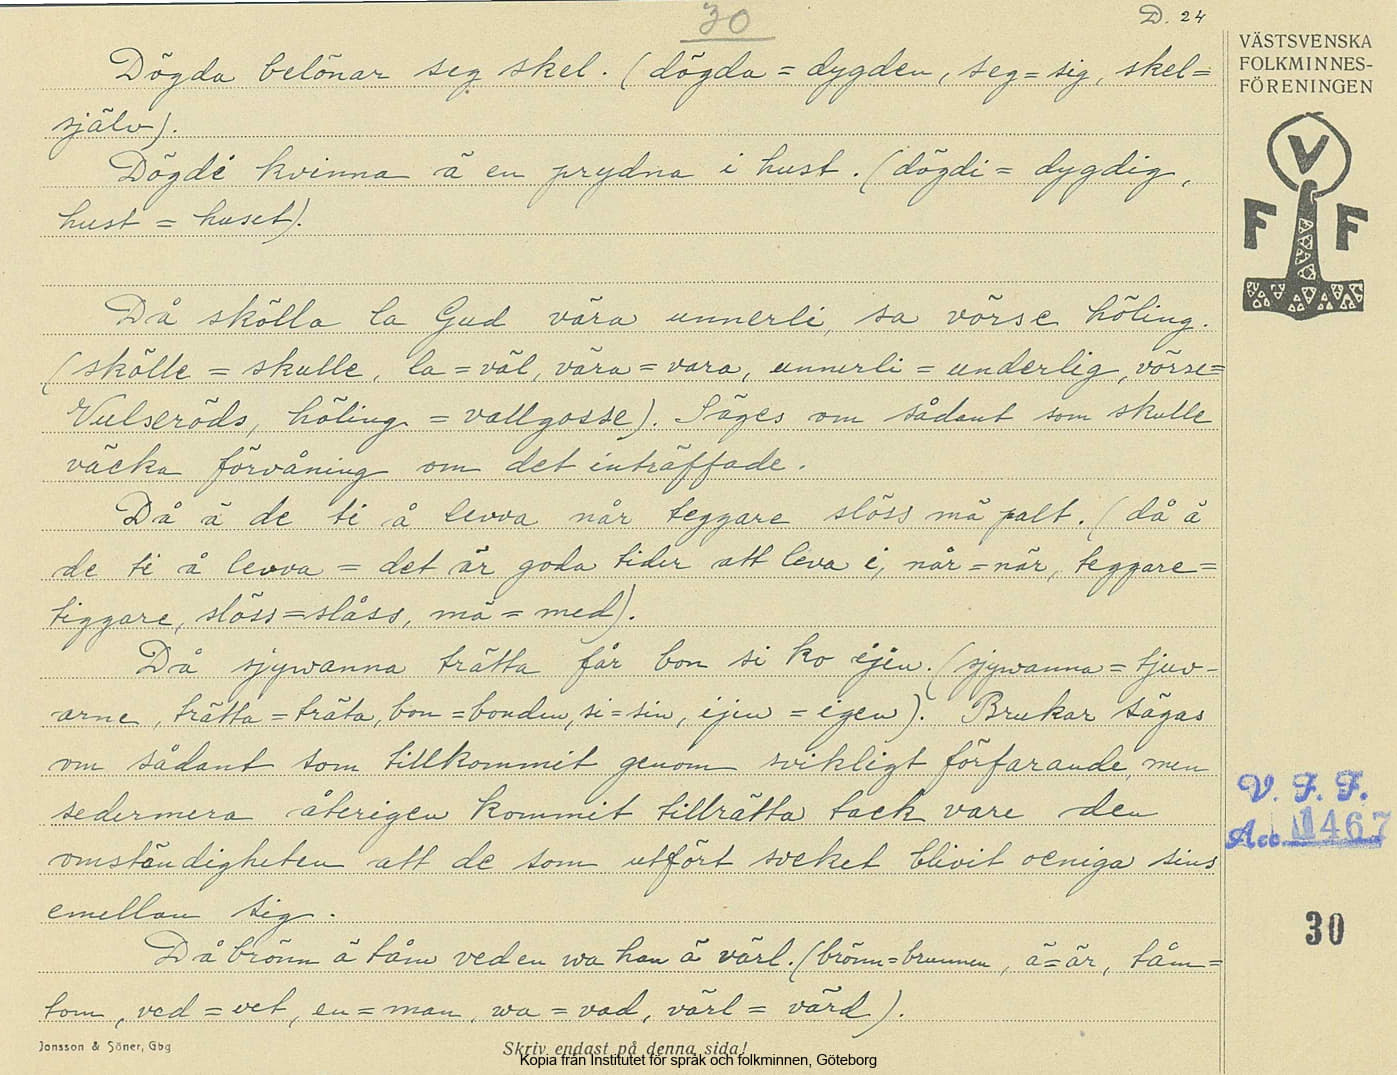 30
D. 24
VÄSTSVENSKA
FOLKMINNES-
FÖRENINGEN
V
F F
Dögda belönar seg skel. (dögda = dygden, seg = sig, skel =
själv).
Dögdi kvinna ä en prydna i hust. (dögdi = dygdig,
hust = huset).
Då skölla la Gud vära unnerli, sa vörse höling.
(skölle = skulle, la = väl, vära = vara, unnerli = underlig, vörse =
Vulseröds, höling = vallgosse). Säges om sådant som skulle
väcka förvåning om det inträffade.
Då ä de ti å levva når teggare slöss mä palt. (då ä
de ti å levva = det är goda tider att leva i, når = när, teggare =
tiggare, slöss = slåss, mä = med).
Då sjywanna trätta får bon si ko ijen. (sjywanna = tjuv-
arne, trätta = träta, bon = bonden, si = sin, ijen = igen). Brukar sägas
om sådant som tillkommit genom svikligt förfarande, men
sedermera återigen kommit tillrätta tack vare den
omständigheten att de som utfört sveket blivit oeniga sins
emellan sig.
Då brönn ä tåm ved en wa han ä värl. (brönn = brunnen, ä = är, tåm =
tom, ved = vet, en = man, wa = vad, värl = värd).
V. F. F.
Acc. 1467
30
Jonsson & Söner, Gbg
Skriv endast på denna sida!
Kopia från Institutet för språk och folkminnen, Göteborg